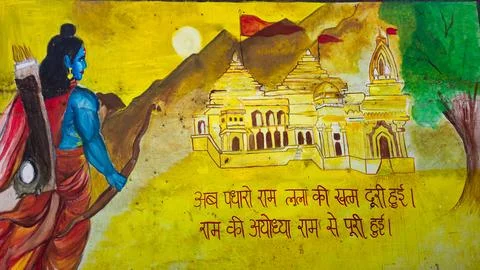 अब पधारो राम लला की खत्म दूरी हुई।
राम की अयोध्या राम से पूरी हुई।